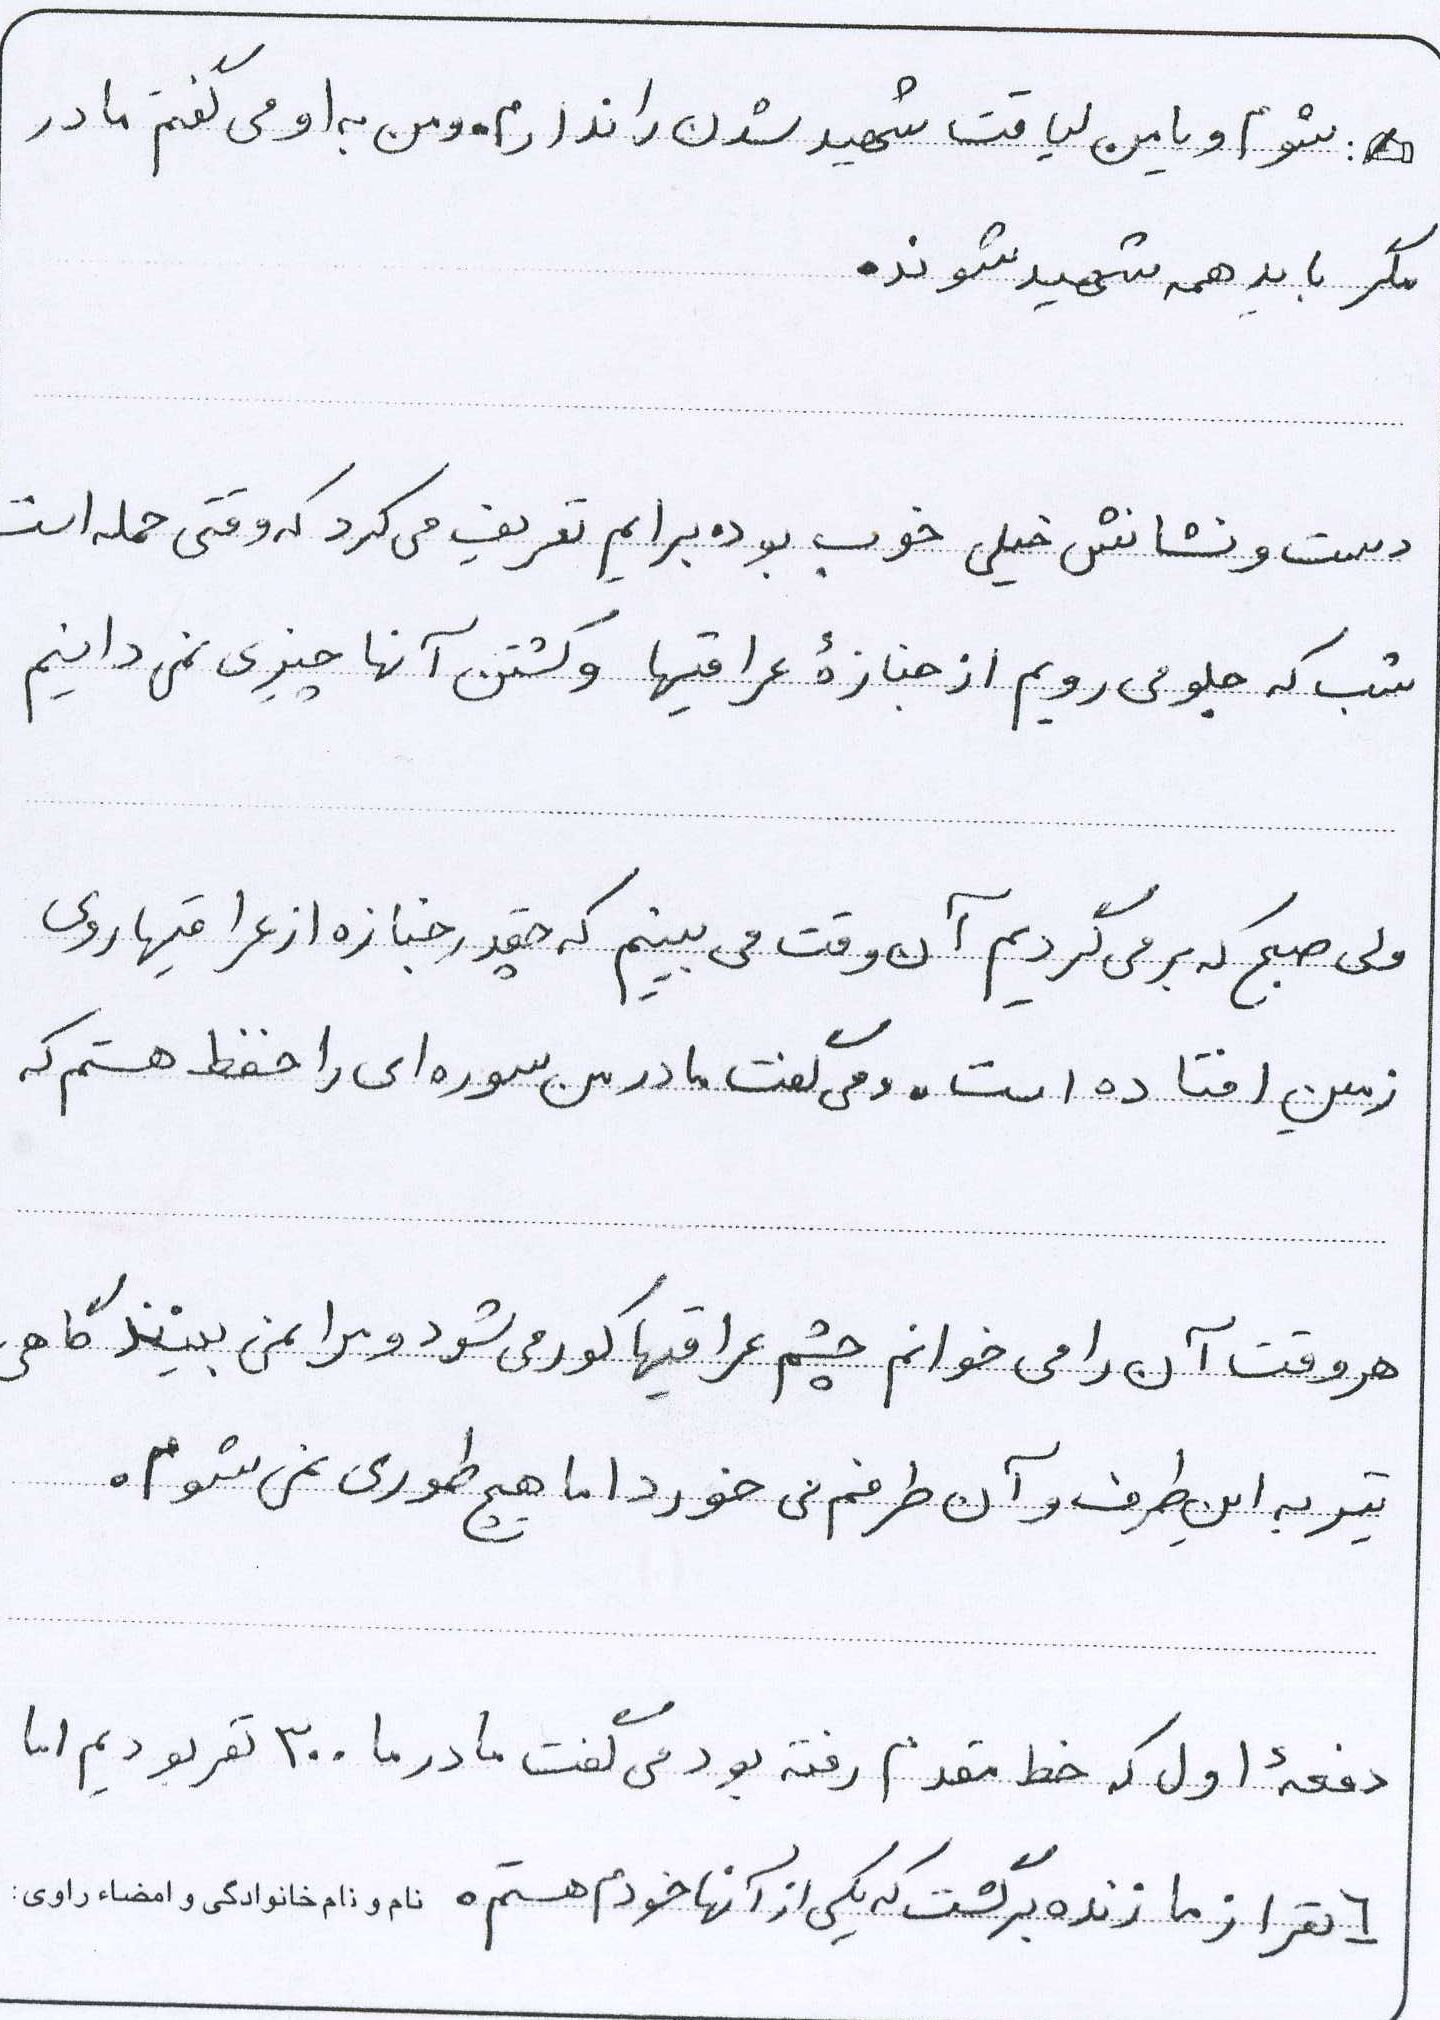 شوم و یا من لیاقت شهید شدن را ندارم. ومن به او می گفتم مادر
مگر باید همه شهید شوند.
دست و نشانش خیلی خوب بوده برایم تعریف می کرد که وقتی حمله است
شب که جلو می رویم از جنازهٔ عراقیها و کشتن آنها چیزی نمی دانیم
ولی صبح که بر می گردیم آن وقت می بینیم که چقدر جنازه از عراقیها روی
زمین افتاده است. و می گفت مادر من سوره ای را حفظ هستم که
هر وقت آن را می خوانم چشم عراقیها کور می شود و مرا نمی بینند گاهی
تیر به این طرف و آن طرفم می خورد اما هیچ طوری نمی شوم.
دفعهٔ اول که خط مقدم رفته بود می گفت مادر ما ۳۰۰ نفر بودیم اما
۶ نفر از ما زنده برگشت که یکی از آنها خودم هستم. نام و نام خانوادگی و امضاء راوی: